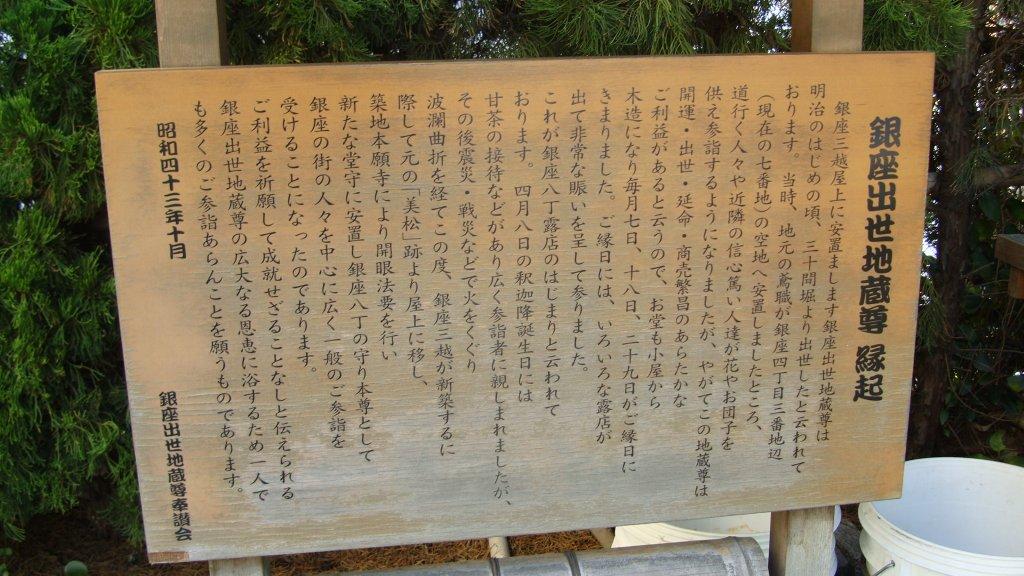 銀座出世地蔵尊 縁起
銀座三越屋上に安置まします銀座出世地蔵尊は
明治のはじめの頃、三十間堀より出世したと云われて
おります。当時、地元の鳶職が銀座四丁目三番地辺
(現在の七番地)の空地へ安置しましたところ、
道行く人々や近隣の信心篤い人達が花やお団子を
供え参詣するようになりましたが、やがてこの地蔵尊は
開運・出世・延命・商売繁昌のあらたかな
ご利益があると云うので、お堂も小屋から
木造になり毎月七日、十八日、二十九日がご縁日に
きまりました。ご縁日には、いろいろな露店が
出て非常な賑いを呈して参りました。
これが銀座八丁露店のはじまりと云われて
おります。四月八日の釈迦降誕生日には
甘茶の接待などがあり広く参詣者に親しまれましたが、
その後震災・戦災などで火をくぐり
波瀾曲折を経てこの度、銀座三越が新築するに
際して元の「美松」跡より屋上に移し、
築地本願寺により開眼法要を行い
新たな堂守に安置し銀座八丁の守り本尊として
銀座の街の人々を中心に広く一般のご参詣を
受けることになったのであります。
ご利益を祈願して成就せざることなしと伝えられる
銀座出世地蔵尊の広大なる恩恵に浴するため一人で
も多くのご参詣あらんことを願うものであります。
昭和四十三年十月
銀座出世地蔵尊奉讃会